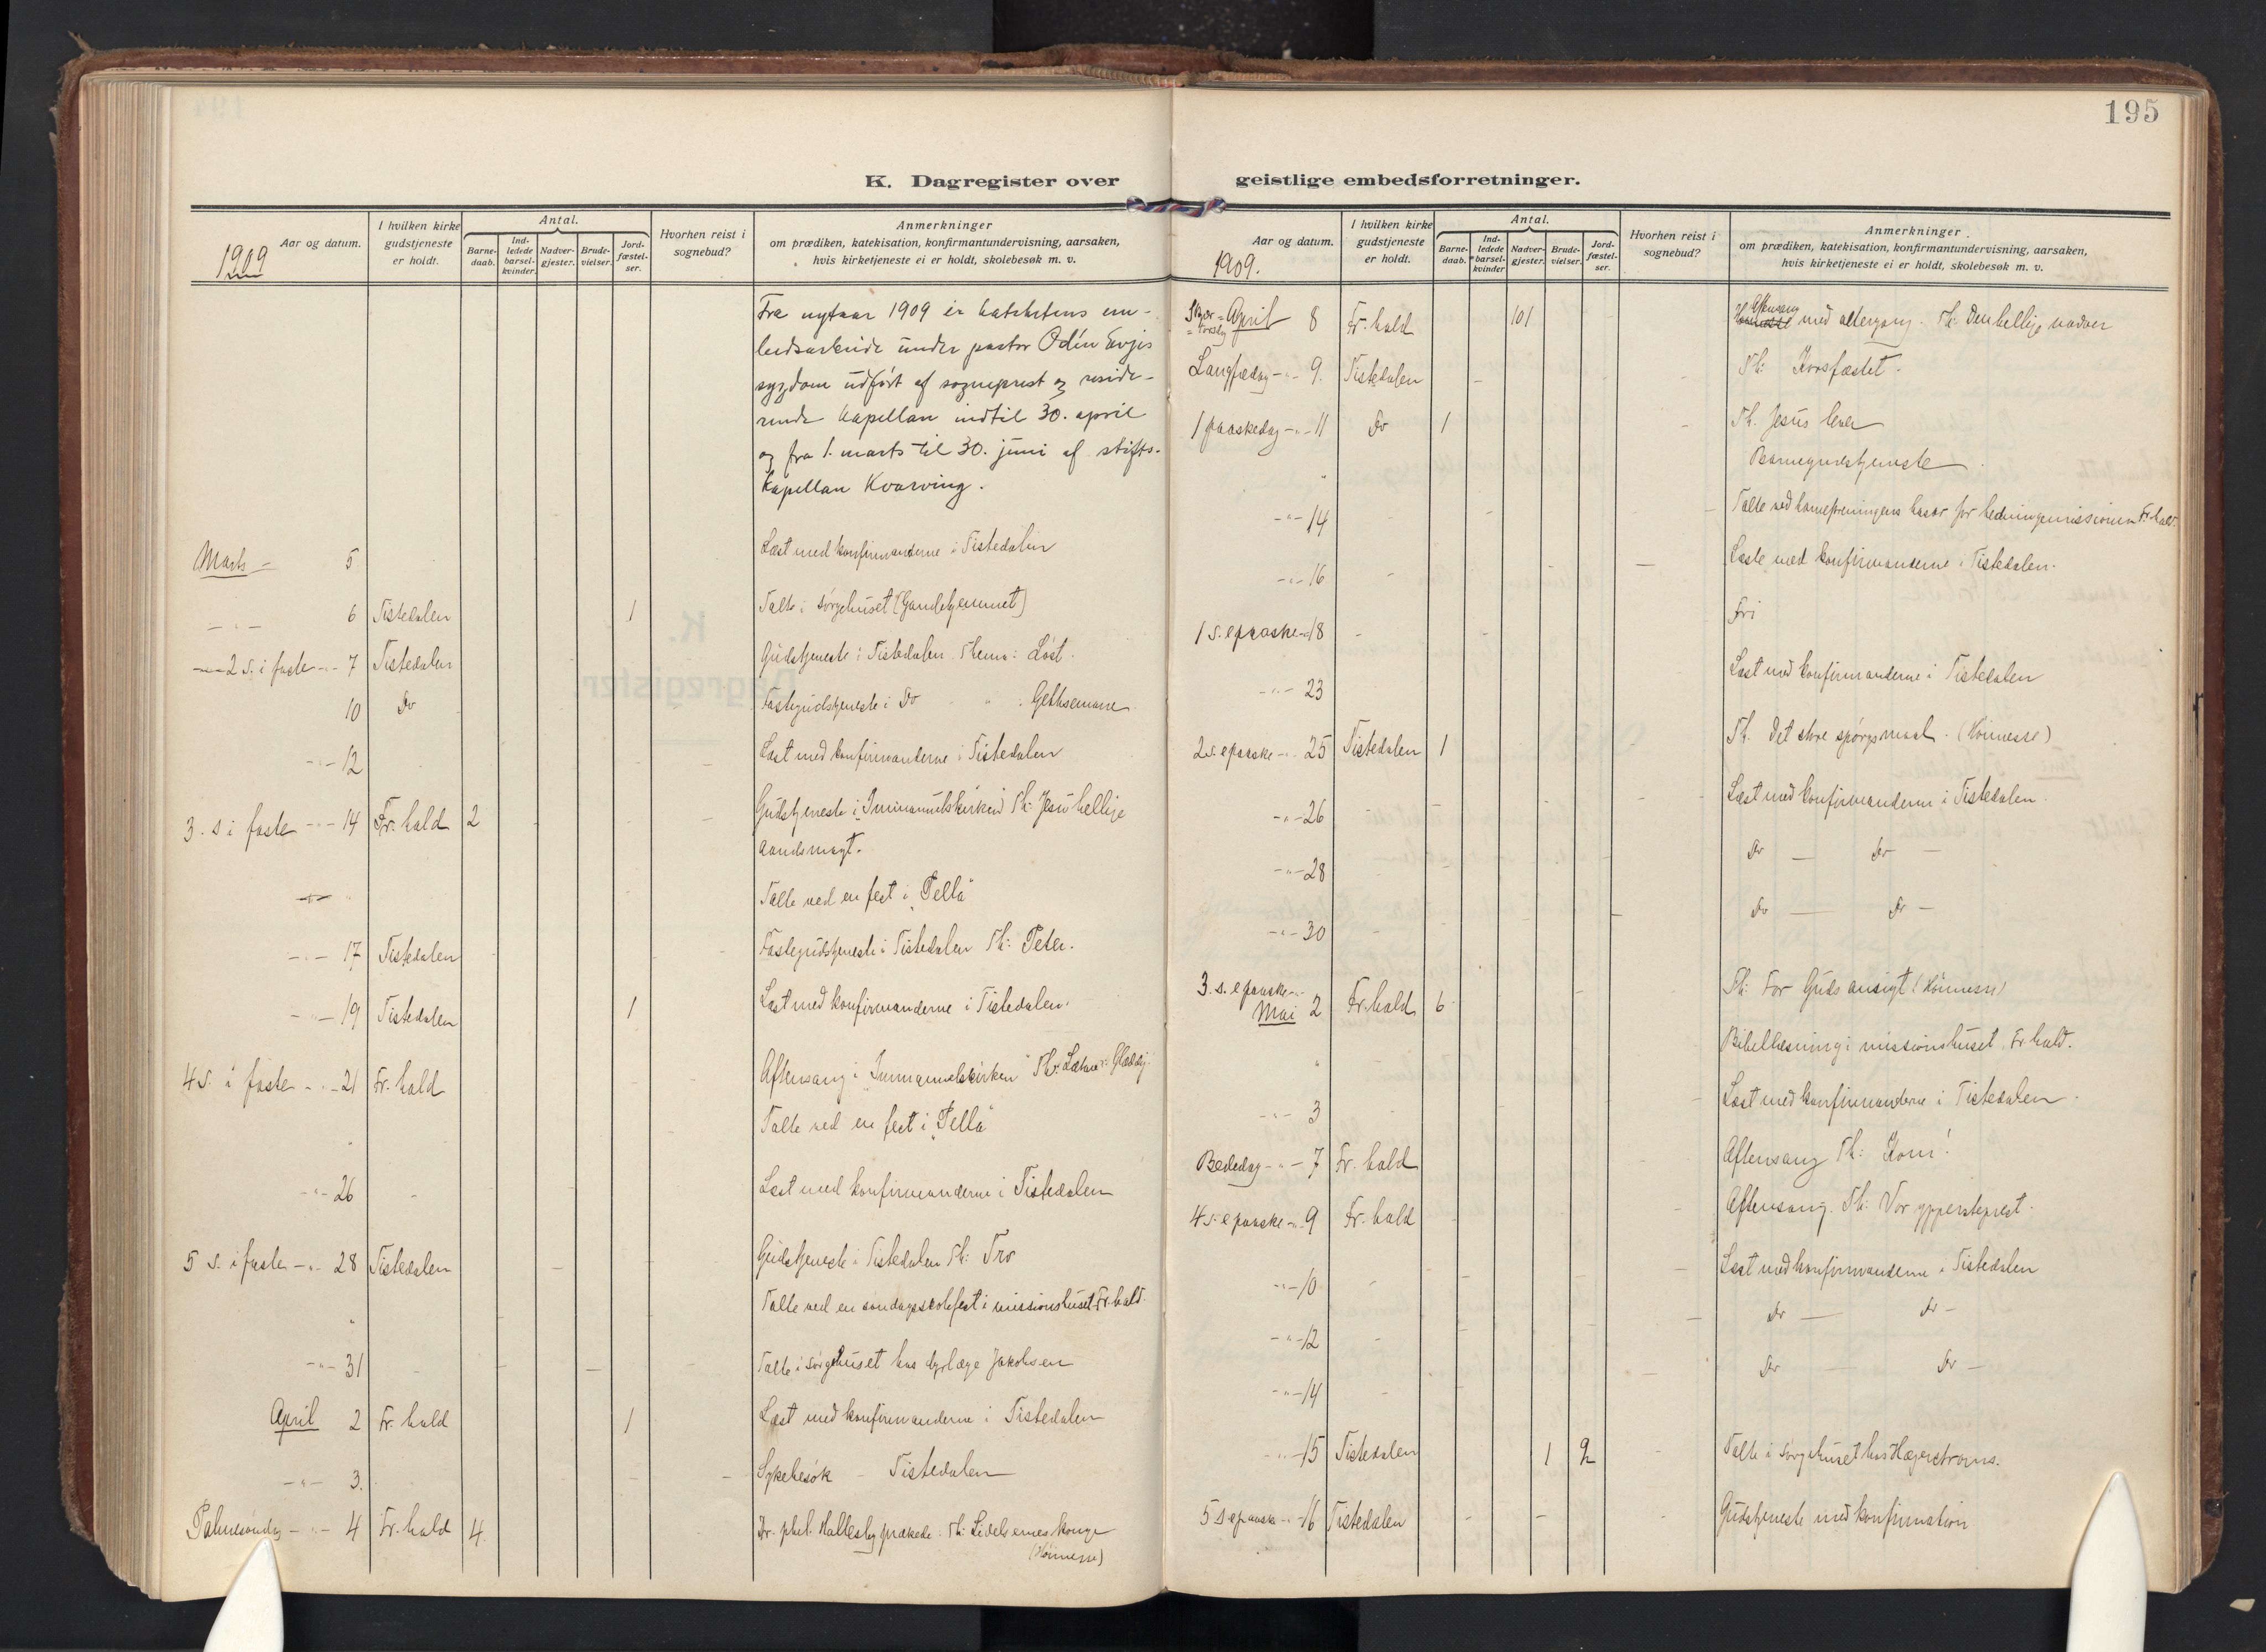 195
K. Dagregister over geistlige embedsforretninger.
Aar og datum.
I hvilken kirke gudstjeneste er holdt.
Antal.
Barne-daab.
Ind-ledede barsel-kvinder.
Nadver-gjester.
Brude-vielser.
Jord-fæstel-ser.
Hvorhen reist i sognebud?
Anmerkninger
om prædiken, katekisation, konfirmantundervisning, aarsaken,
hvis kirketjeneste ei er holdt, skolebesøk m. v.
1909
Fra nytaar 1909 er katekets em-
bedsarbeide under pastor Odin Evjes
sygdom udført af sogneprest og reside-
rende kapellan indtil 30. april
og fra 1. marts til 30. juni af stifts-
kapellan Kvarving.
Marts - 5 Læst med konfirmanderne i Tistedalen
- " - 6 Tistedalen 1 Talte i sørgehuset (Gamlehjemmet)
2 s. i faste - " - 7 Tistedalen Gudstjeneste i Tistedalen. Thema: Løst.
10 Do Fastegudstjeneste i Do " : Gethsemane
- " - 12 Læst med konfirmanderne i Tistedalen
3. s i faste - " - 14 Fr.hald 2 Gudstjeneste i "Immanuelskirken" Th: Jesu hellige
aandsmagt.
" Talte ved en fest i "Pella"
- " - 17 Tistedalen Fastegudstjeneste i Tistedalen Th: Peter.
- " - 19 Tistedalen 1 Læst med konfirmanderne i Tistedalen.
4 s. i faste - " - 21 Fr.hald Aftensang i "Immanuelskirken" Th: Lætare: Glæd dig
" Talte ved en fest i "Pella"
- " - 26 Læst med konfirmanderne i Tistedalen
5 s. i faste - " - 28 Tistedalen Gudstjeneste i Tistedalen Th: Tro
" Talte ved en søndagsskolefest i missionshuset Fr.hald.
- " - 31 Talte i sørgehuset hos dyrlæge Jakobsen
April 2 Fr.hald 1 Læst med konfirmanderne i Tistedalen
- " - 3. Sykebesøk - Tistedalen
Palmesøndag - " - 4 Fr.hald 4. Dr. phil. Hallesby prækede. Th: Lidelsernes konge
(Høimesse)
Aar og datum.
I hvilken kirke gudstjeneste er holdt.
Antal.
Barne-daab.
Ind-ledede barsel-kvinder
Nadver-gjester.
Brude-vielser.
Jord-fæstel-ser.
Hvorhen reist i sognebud?
Anmerkninger
om prædiken, katekisation, konfirmantundervisning, aarsaken,
hvis kirketjeneste ei er holdt, skolebesøk m. v.
1909.
Skjær=torsdag April 8 Fr.hald 101 Aftensang med altergang. Th: Den hellige nadver
Langfredag - " - 9. Tistedalen Th: Korsfæstet.
1 paaskedag - " - 11 Do 1 Th. Jesus lever
" Barnegudstjeneste
- " - 14 Talte ved barneforeningens basar for hedningemissionen Fr.hald.
- " - 16 Læste med konfirmanderne i Tistedalen.
1 s. e paaske - " - 18 Fri
- " - 23 Læst med konfirmanderne i Tistedalen
2 s. e paaske - " - 25 Tistedalen 1 Th. Det store spørgsmaal. (Høimesse)
- " - 26 Læst med konfirmanderne i Tistedalen.
- " - 28 Do — Do —
- " - 30 Do — Do —
3. s. e paaske - " -
Mai 2 Fr.hald 6 Th: For Guds ansigt (Høimesse)
" Bibellæsning i missionshuset Fr.hald.
- " - 3 Læst med konfirmanderne i Tistedalen.
Bededag - " - 7 Fr.hald Aftensang Th: Kom!
4 s. e paaske - " - 9 Fr.hald Aftensang. Th: Vor ypperstepræst.
- " - 10 Læst med konfirmanderne i Tistedalen
- " - 12 Do — Do —
- " - 14 Do — Do —
- " - 15 Tistedalen 1 2 Talte i sørgehuset hos Hægerstrøms.
5 s e paaske - " - 16 Tistedalen Gudstjeneste med konfirmation